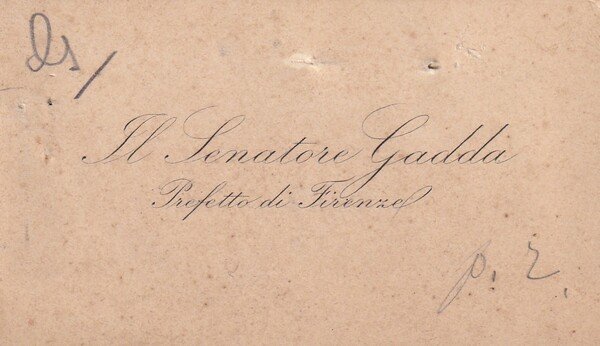 Il Senatore Gadda
Prefetto di Firenze
p. r.